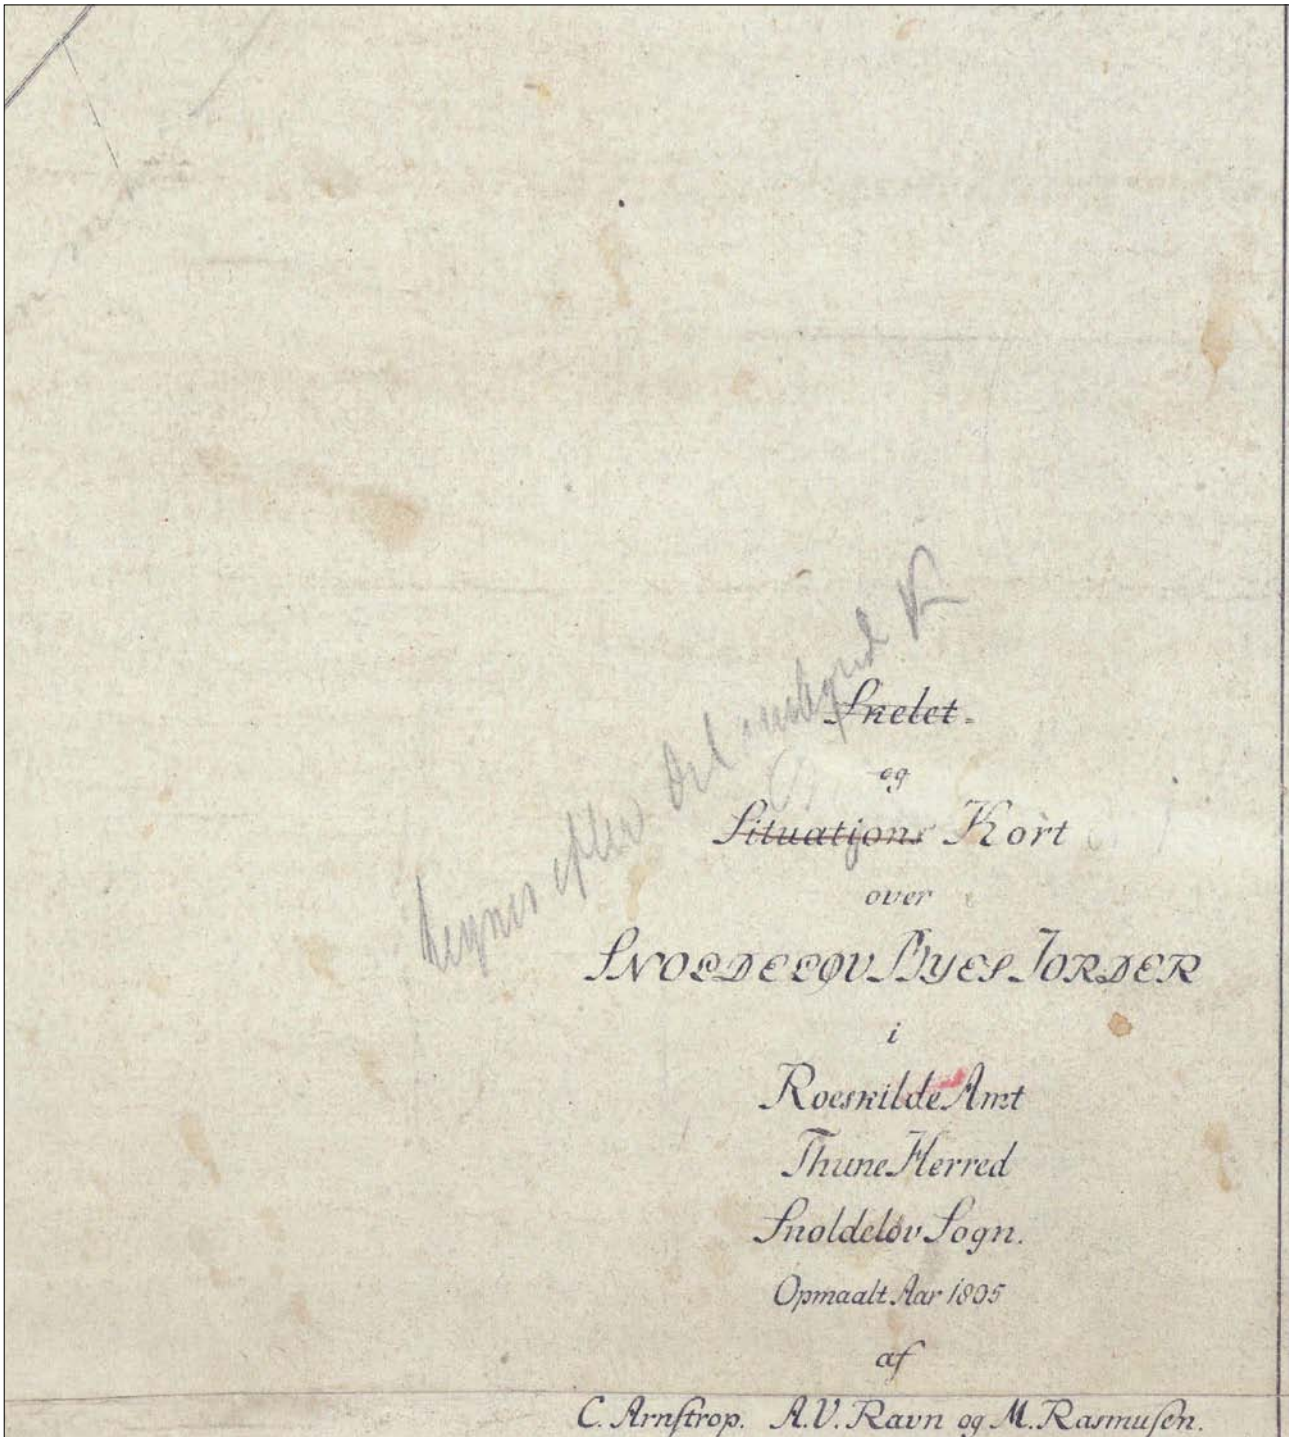 Skelet=
og
Situations Kort
over
SNOLDELØV BYES JORDER
i
Roeskilde Amt
Thune Herred
Snoldeløv Sogn.
Opmaalt Aar 1805
af
C. Arnſtrop. A.V. Ravn og M. Rasmuſen.
tegnes efter det